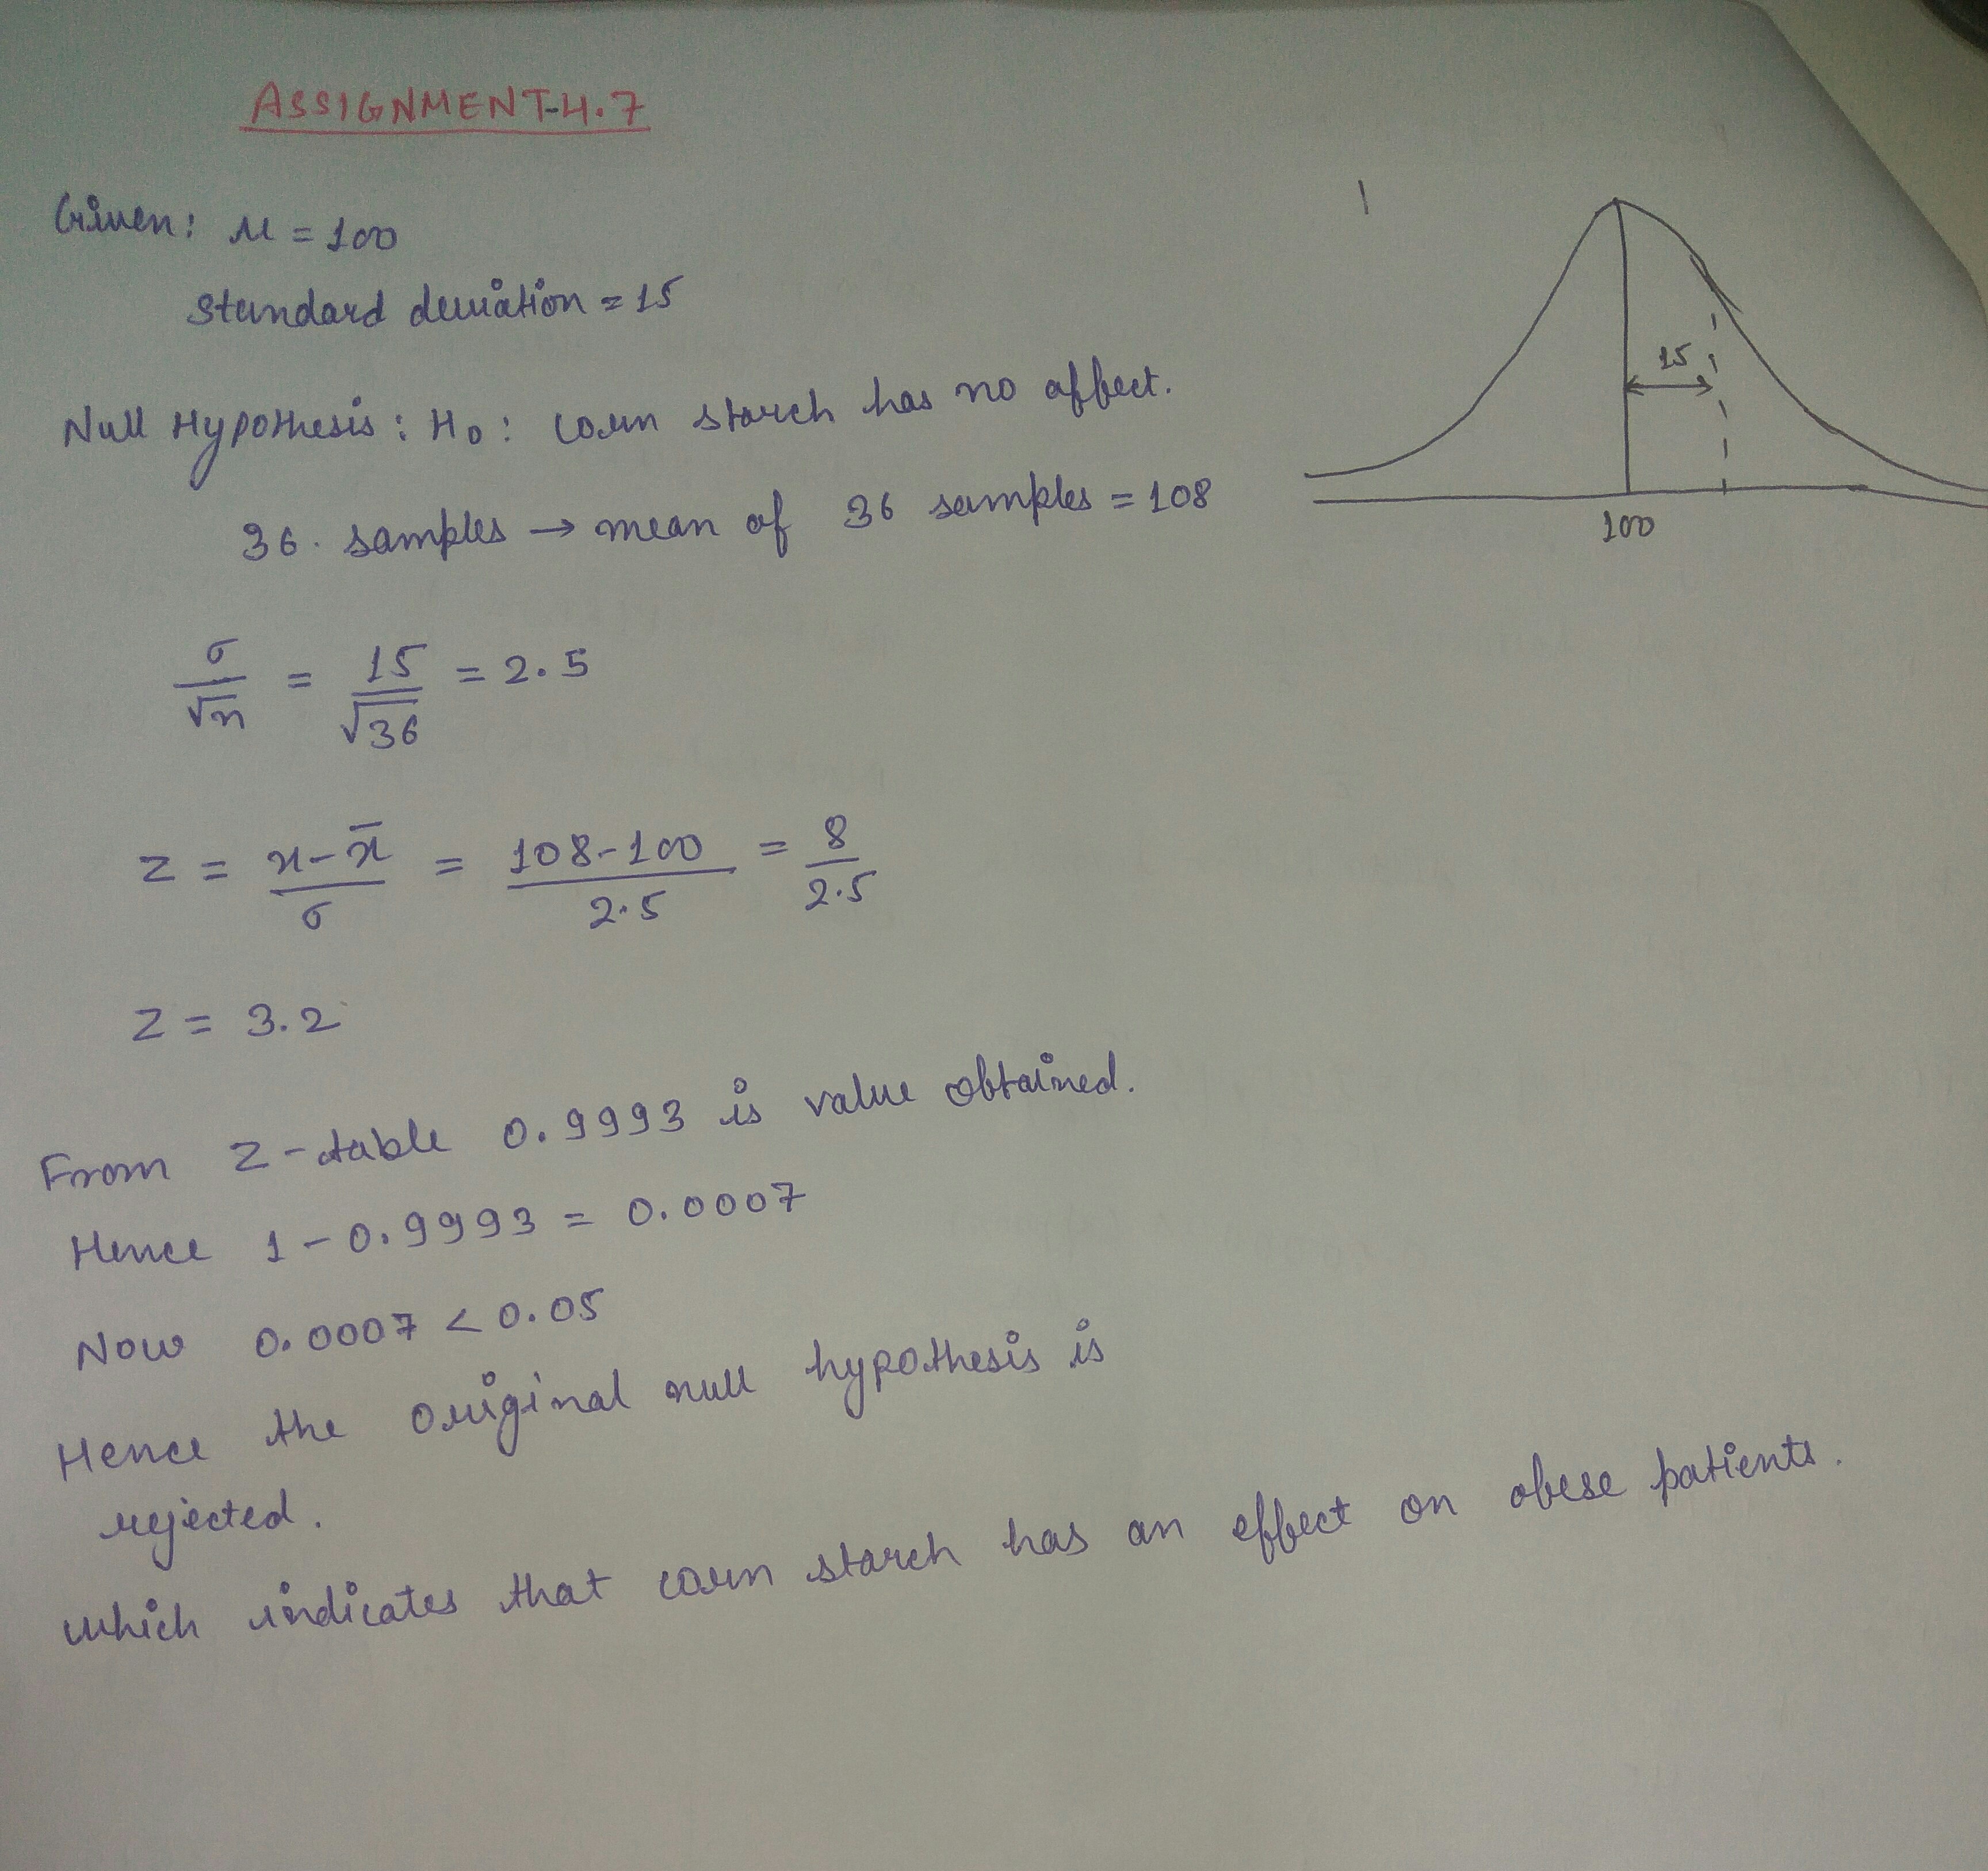 ASSIGNMENT-4.7
Given: μ = 100
Standard deviation = 15
Null Hypothesis: H₀: corn starch has no affect.
36. samples → mean of 36 samples = 108
σ/√n = 15/√36 = 2.5
z = x-x̄/σ = 108-100/2.5 = 8/2.5
z = 3.2
From z-table 0.9993 is value obtained.
Hence 1-0.9993 = 0.0007
Now 0.0007 < 0.05
Hence the original null hypothesis is
rejected.
which indicates that corn starch has an effect on obese patients.
15
100